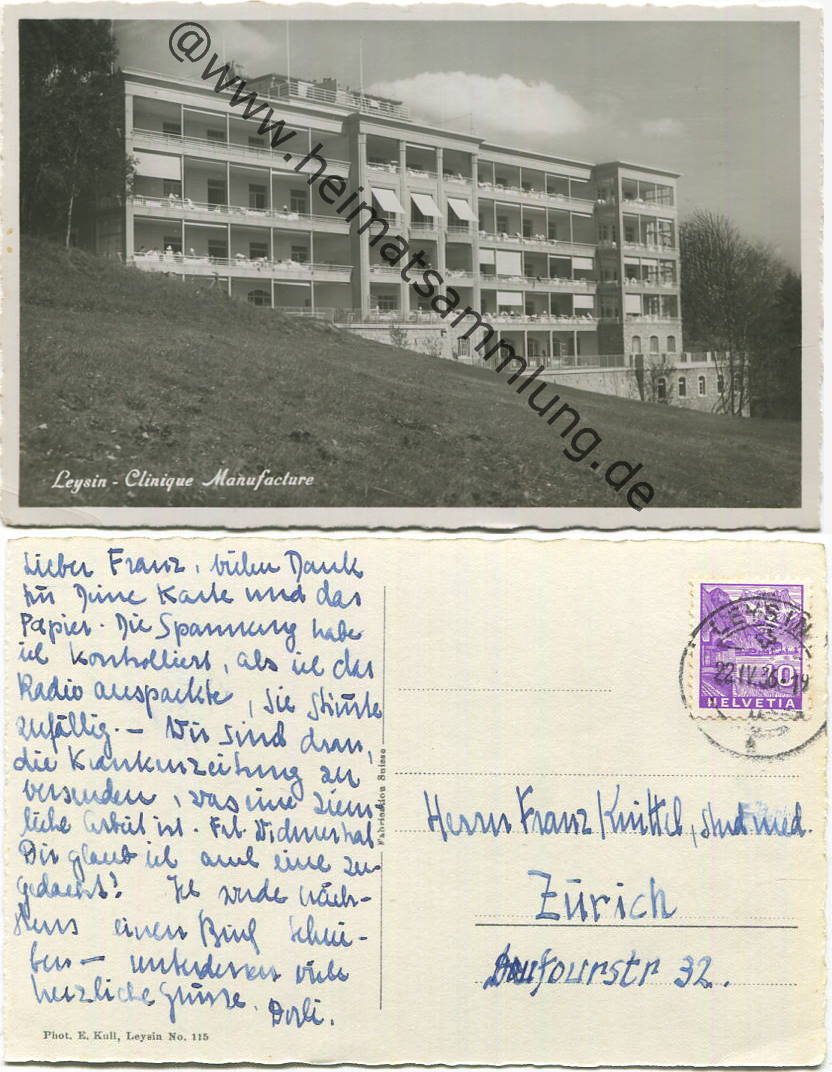 @www.heimatsammlung.de
Leysin - Clinique Manufacture
Lieber Franz, vielen Dank
für Deine Karte und das
Papier. Die Spannung habe
ich kontrolliert, als ich das
Radio auspackte, sie stimte
zufällig. — Wir sind dran,
die Krankenzeitung zu
versenden, was eine ziem-
liche Arbeit ist. Frl. Widmer hat
Dir glaub ich auch eine zu-
gedacht? Ich werde näch-
stens einen Brief schrei-
ben — unterdessen viele
herzliche Grüsse. Dorli.
Phot. E. Kuli, Leysin No. 115
Fabrication Suisse
LEYSIN
22.IV.36.-19
10
HELVETIA
Herrn Franz Knittel, stud med.
Zürich
Dufourstr 32.